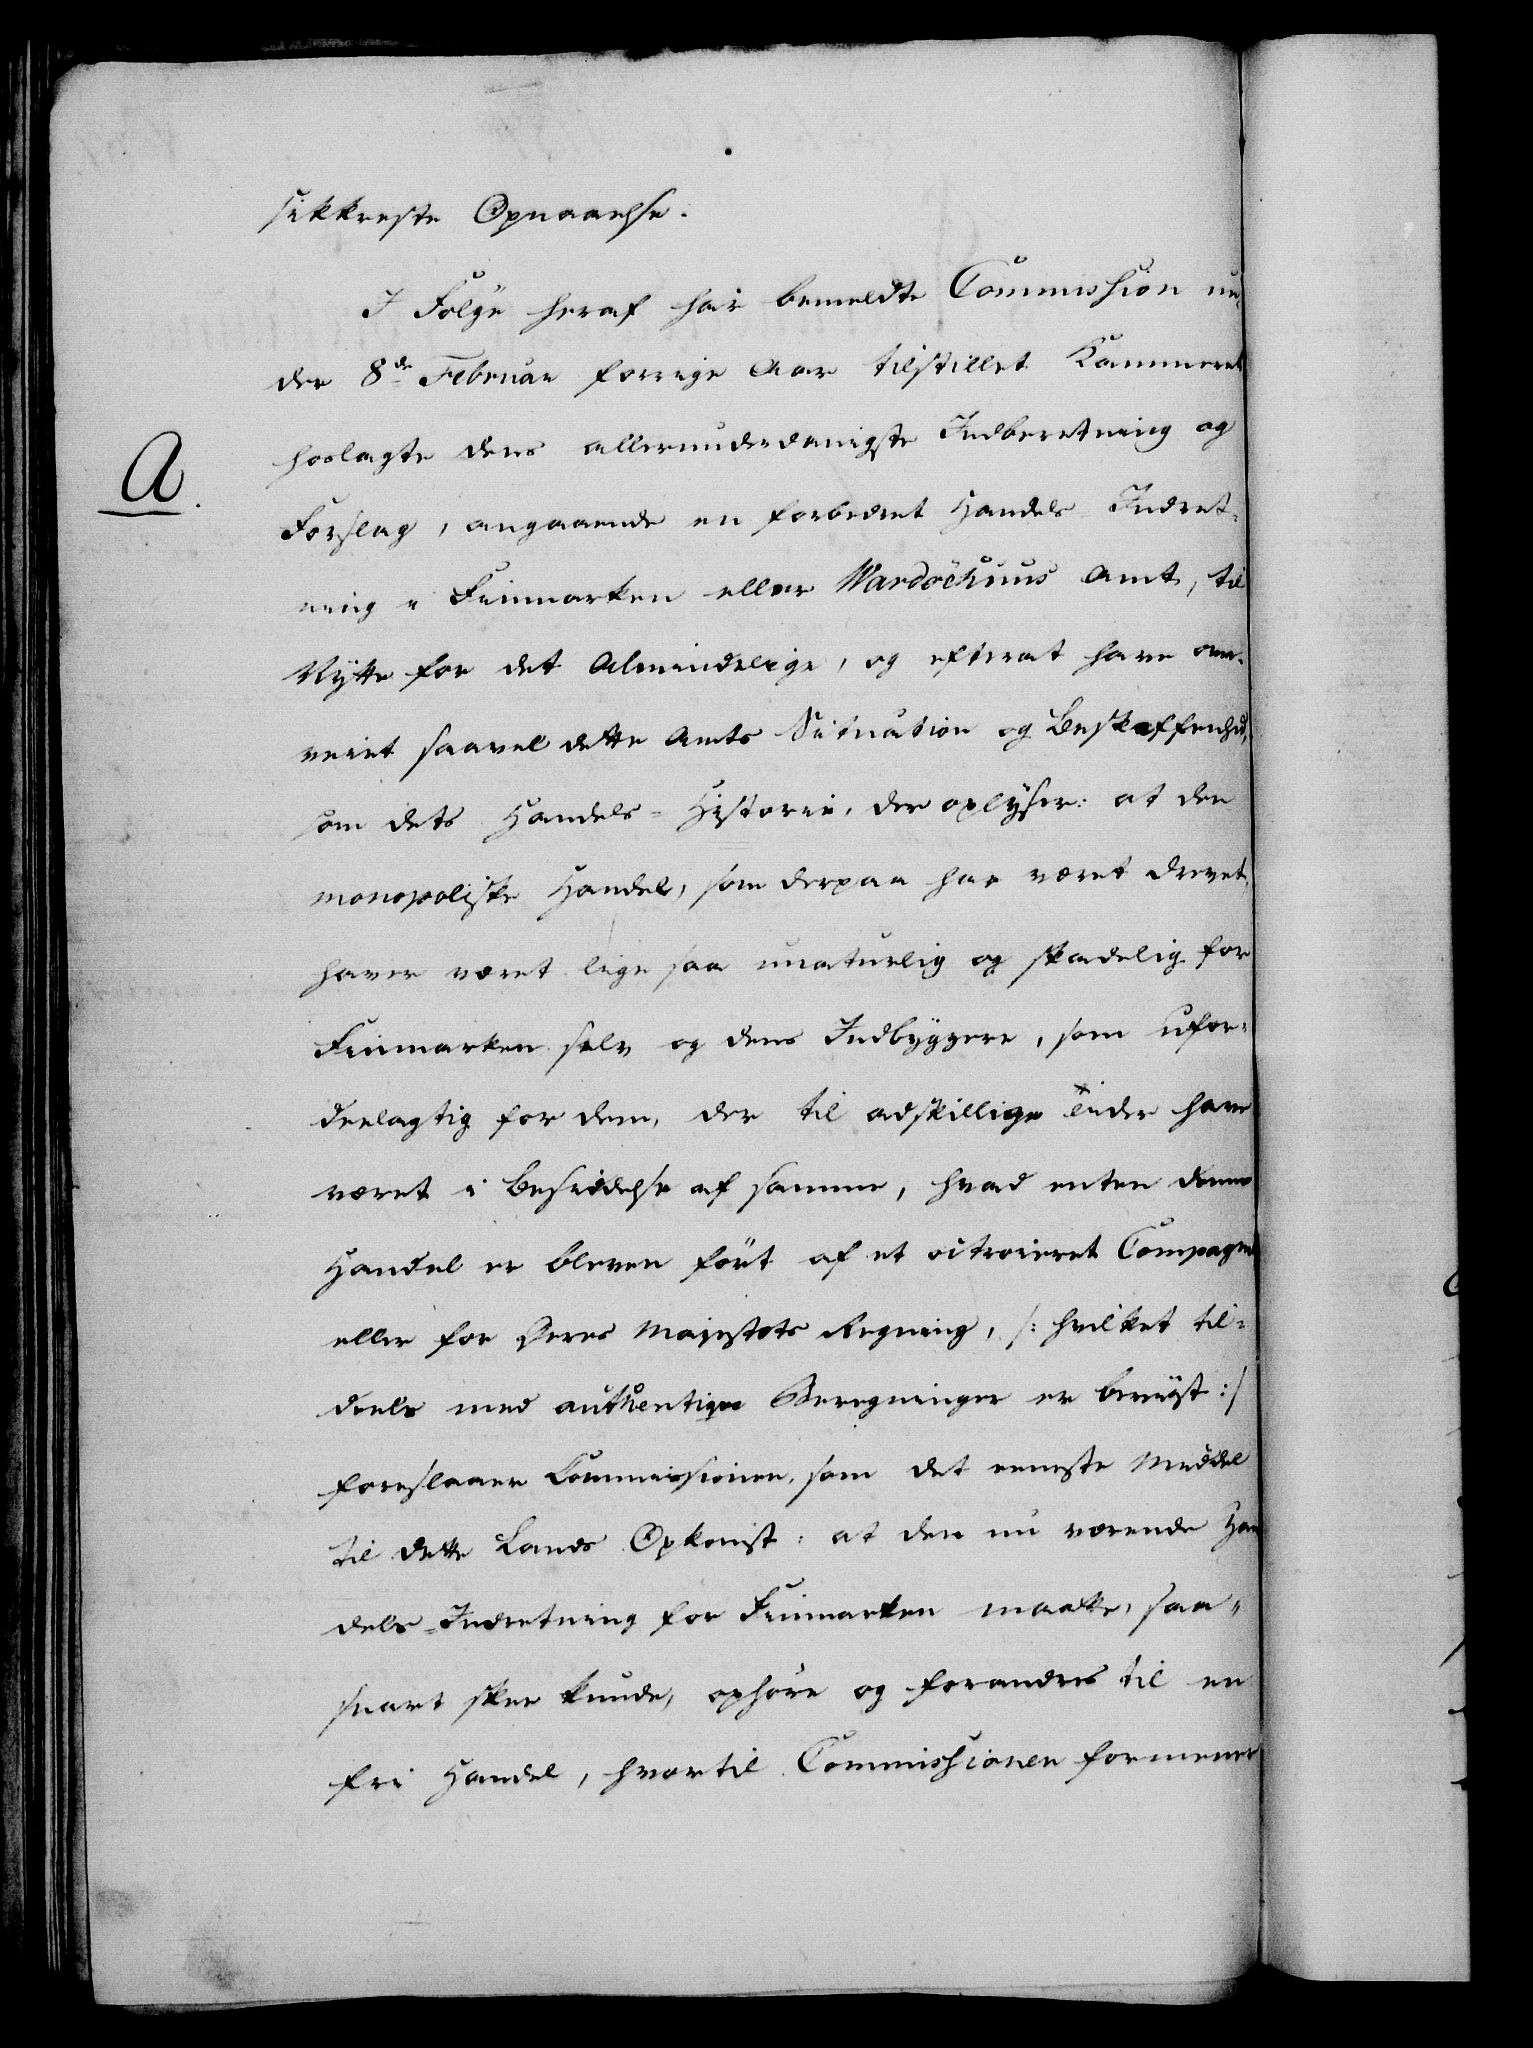 sikkreste Opnaaelse.
I Følge heraf har bemeldte Commission un-
der 8de Februar forrige Aar tilstillet Kammeret
hoslagte dens allerunderdanigste Indberetning og
A.
Forslag, angaaende en forbedret Handels Indret-
ning i Finmarken eller Wardöehuus Amt, til
Nytte for det Almindelige, og efterat have over-
veiet saavel dette Amts Situation og Beskaffenhed,
som dets Handels-Historie, der oplyser: at den
monopoliske Handel, som derpaa har været drevet,
haver været lige saa unaturlig og skadelig for
Finmarken selv og dens Indbyggere, som ufor-
deelagtig for dem, der til adskillige Tider have
været i Besiddelse af samme, hvad enten denne
Handel er bleven fört af et octroieret Compagnie
eller for Deres Majestæts Regning, /: hvilket til-
deels med authentiqve Beregninger er beviist :/
foreslaaer Commissionen, som det eeneste Middel
til dette Lands Opkomst: at den nu værende Han
dels-Indretning for Finmarken maatte, saa-
snart skee kunde, ophöre og forandres til en
fri Handel, hvortil Commissionen formener